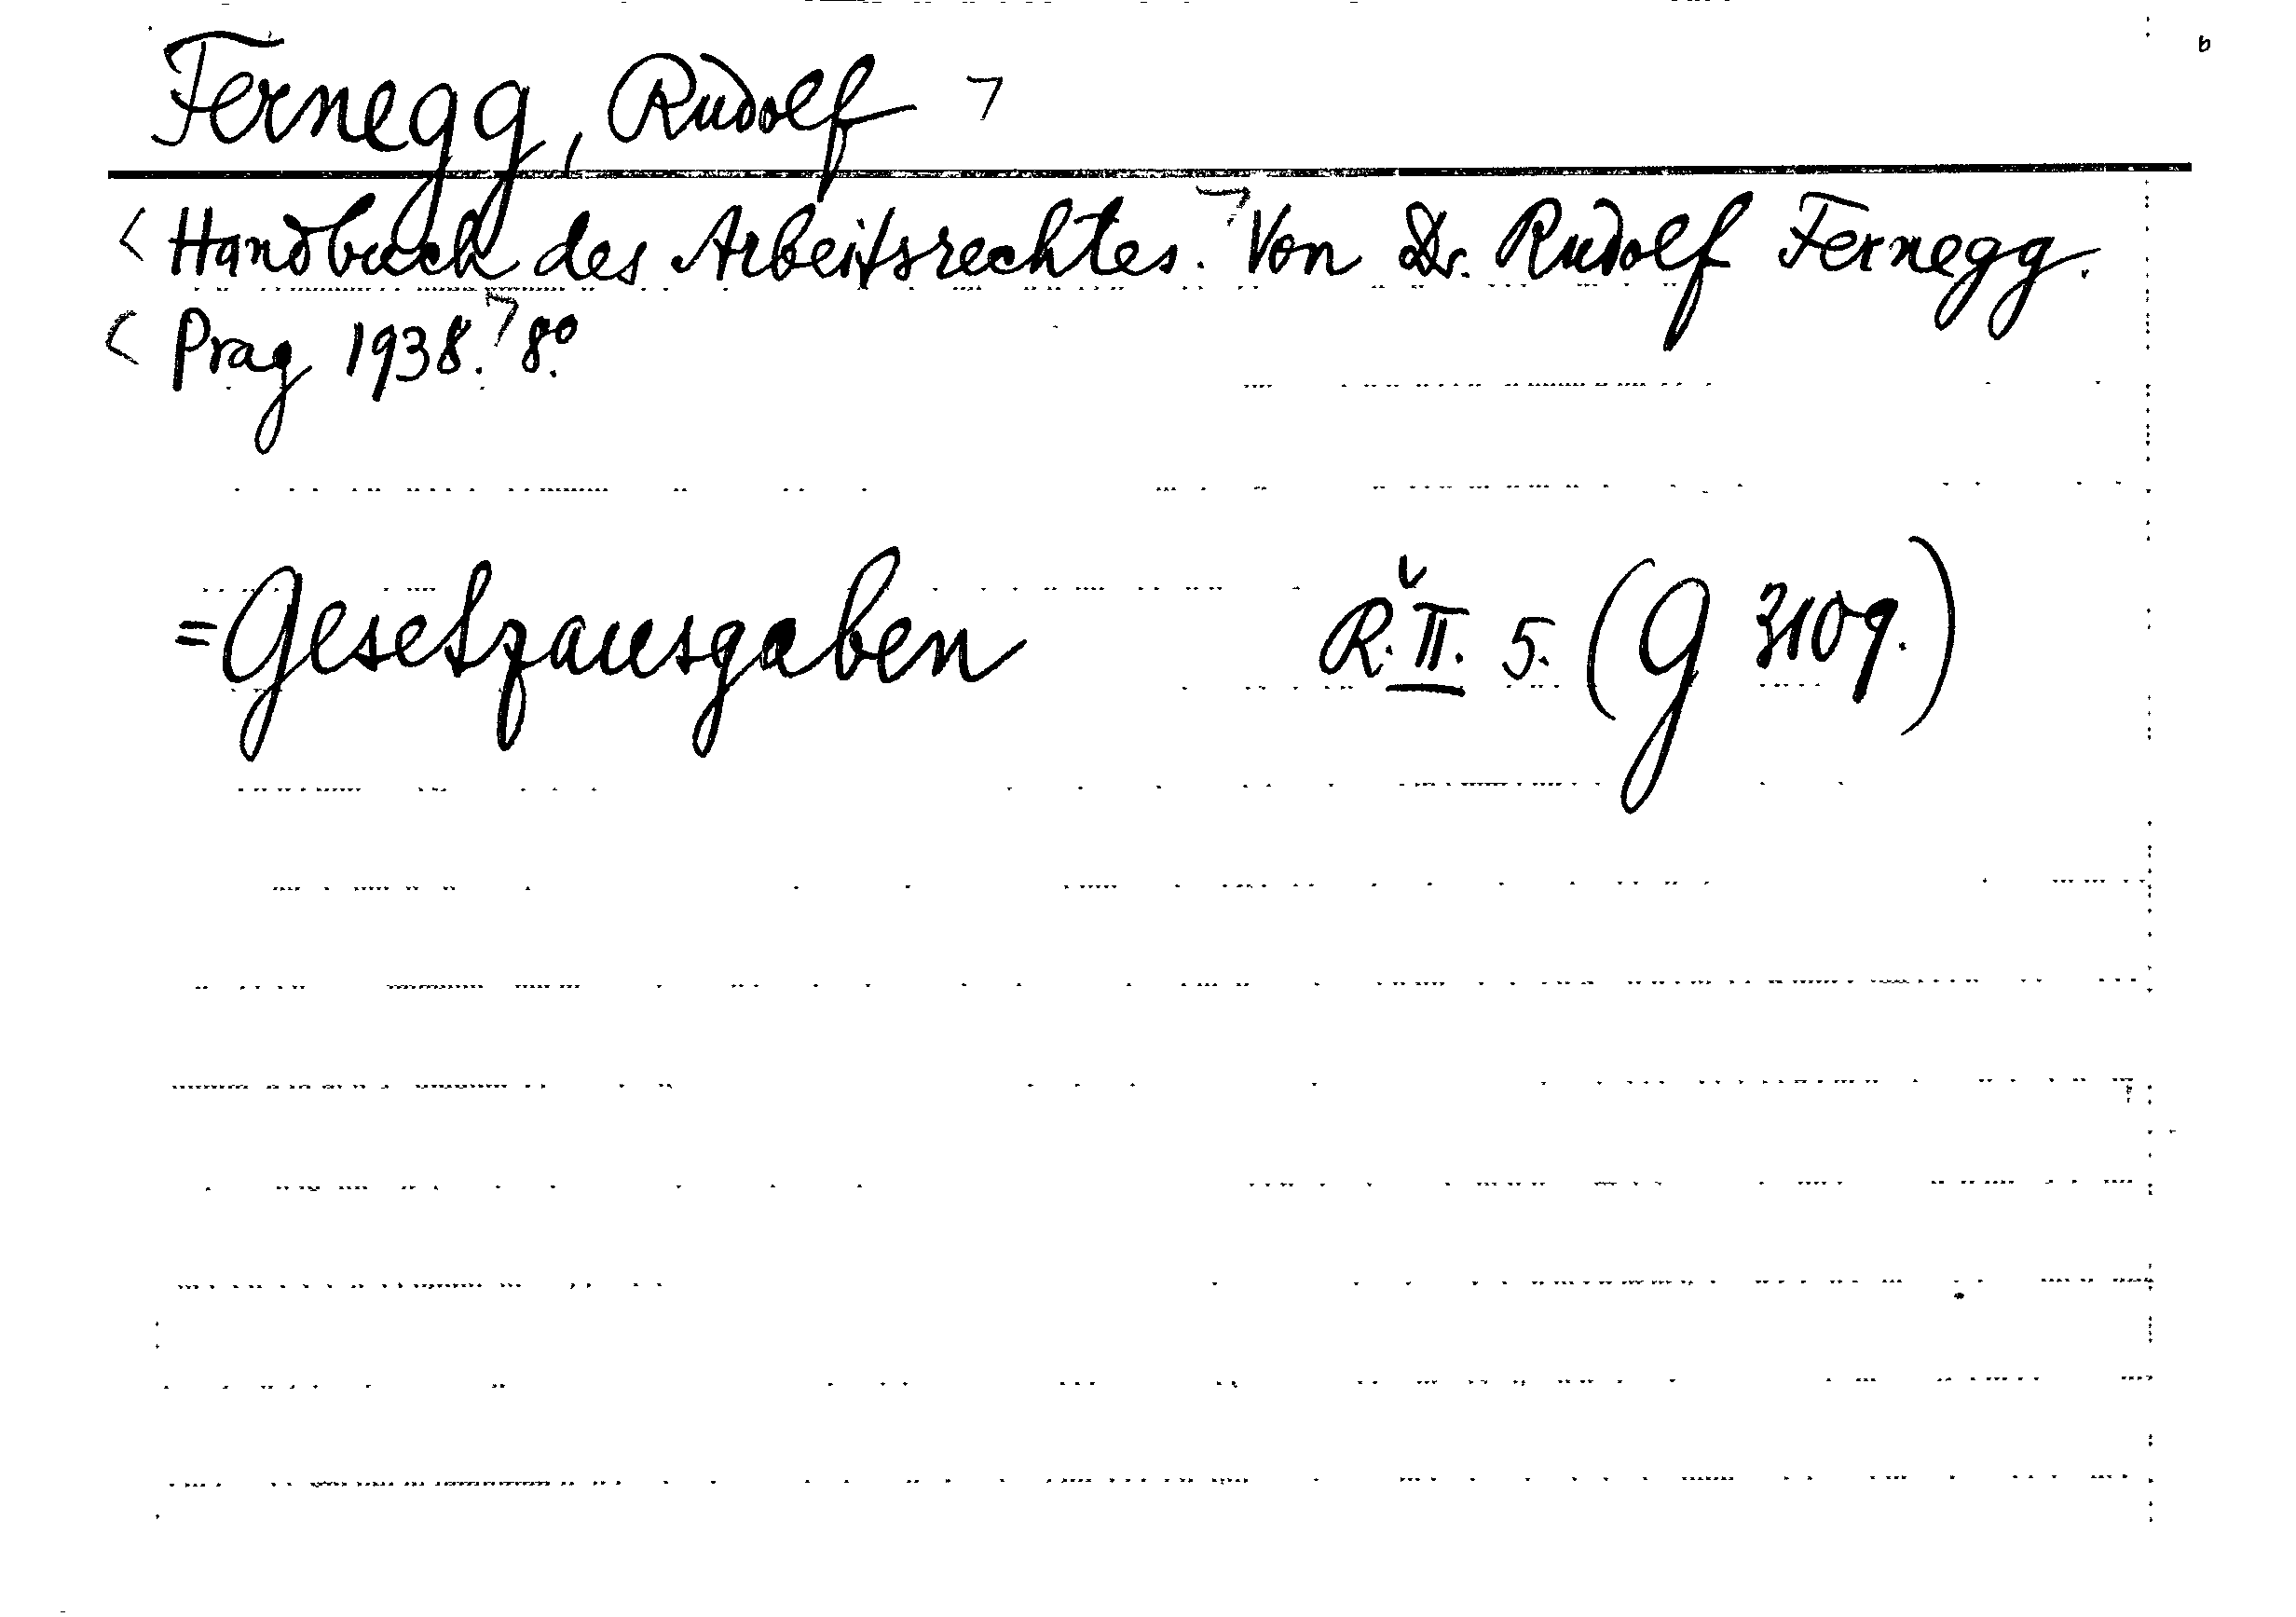 Fernegg, Rudolf ㄱ
< Handbuch des Arbeitsrechtes.ㄱ Von Dr. Rudolf Fernegg.
< Prag 1938.ㄱ 8º.
= Gesetzausgaben R. II. 5. (G 3109.)